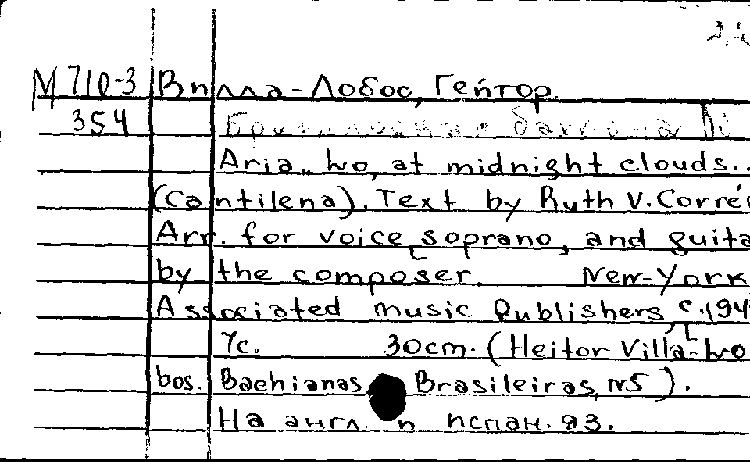 М 710-3 Вилла-Лобос, Гейтор.
354
Aria. Lo, at midnight clouds..
(Cantilena). Text by Ruth V. Corrêa
Arr. for voice, soprano, and guita
by the composer. New-York,
Associated music Publishers, c.194
7с. 30cm. (Heitor Villa-Lo
bos. Bachianas Brasileiras, N5).
На англ. и испан. яз.